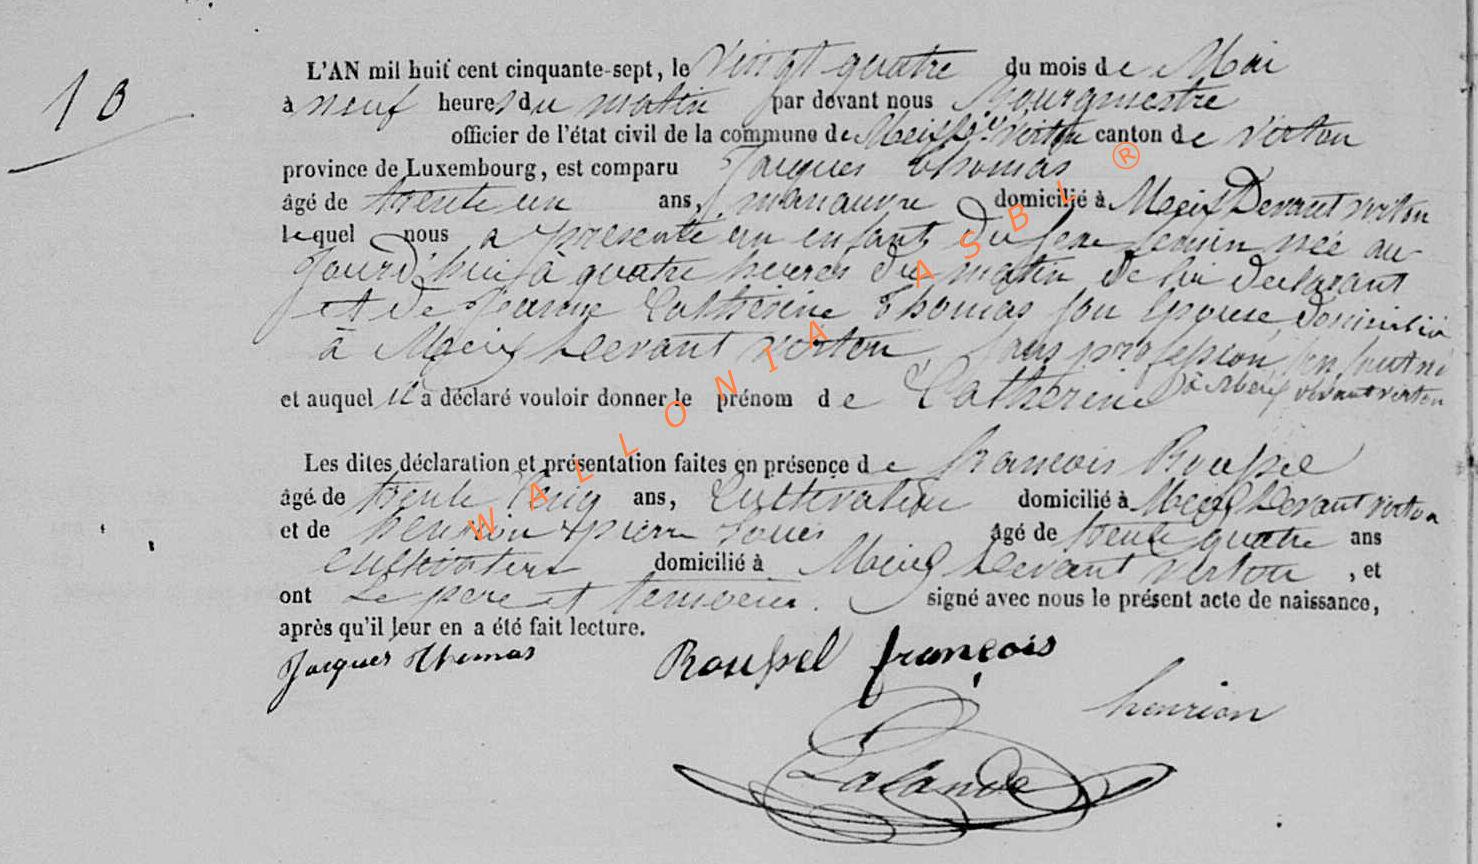 13
L'AN mil huit cent cinquante-sept, le vingt quatre du mois de Mai
à neuf heures du matin par devant nous Bourgmestre
officier de l'état civil de la commune de Meix dt virton canton de virton
province de Luxembourg, est comparu Jacques Thomas
âgé de trente un ans, manœuvre domicilié à Meix Devant virton
lequel nous a présenté un enfant du sexe féminin née au
jourd'hui à quatre heures du matin de lui déclarant
et de Jeanne Catherine Thomas son épouse, domicilié
à Meix Devant virton, sans profession,
et auquel il a déclaré vouloir donner le prénom de Catherine à Meix devant virton
Les dites déclaration et présentation faites en présence de francois Roussel
âgé de trente cinq ans, Cultivateur domicilié à Meix Devant virton
et de henrion pierre âgé de trente quatre ans
cultivateur domicilié à Meix Devant virton, et
ont Le père et temoins. signé avec nous le présent acte de naissance,
après qu'il leur en a été fait lecture.
Jacques Thomas Roussel françois
henrion
Lalande
WALLONIA ASBL ®